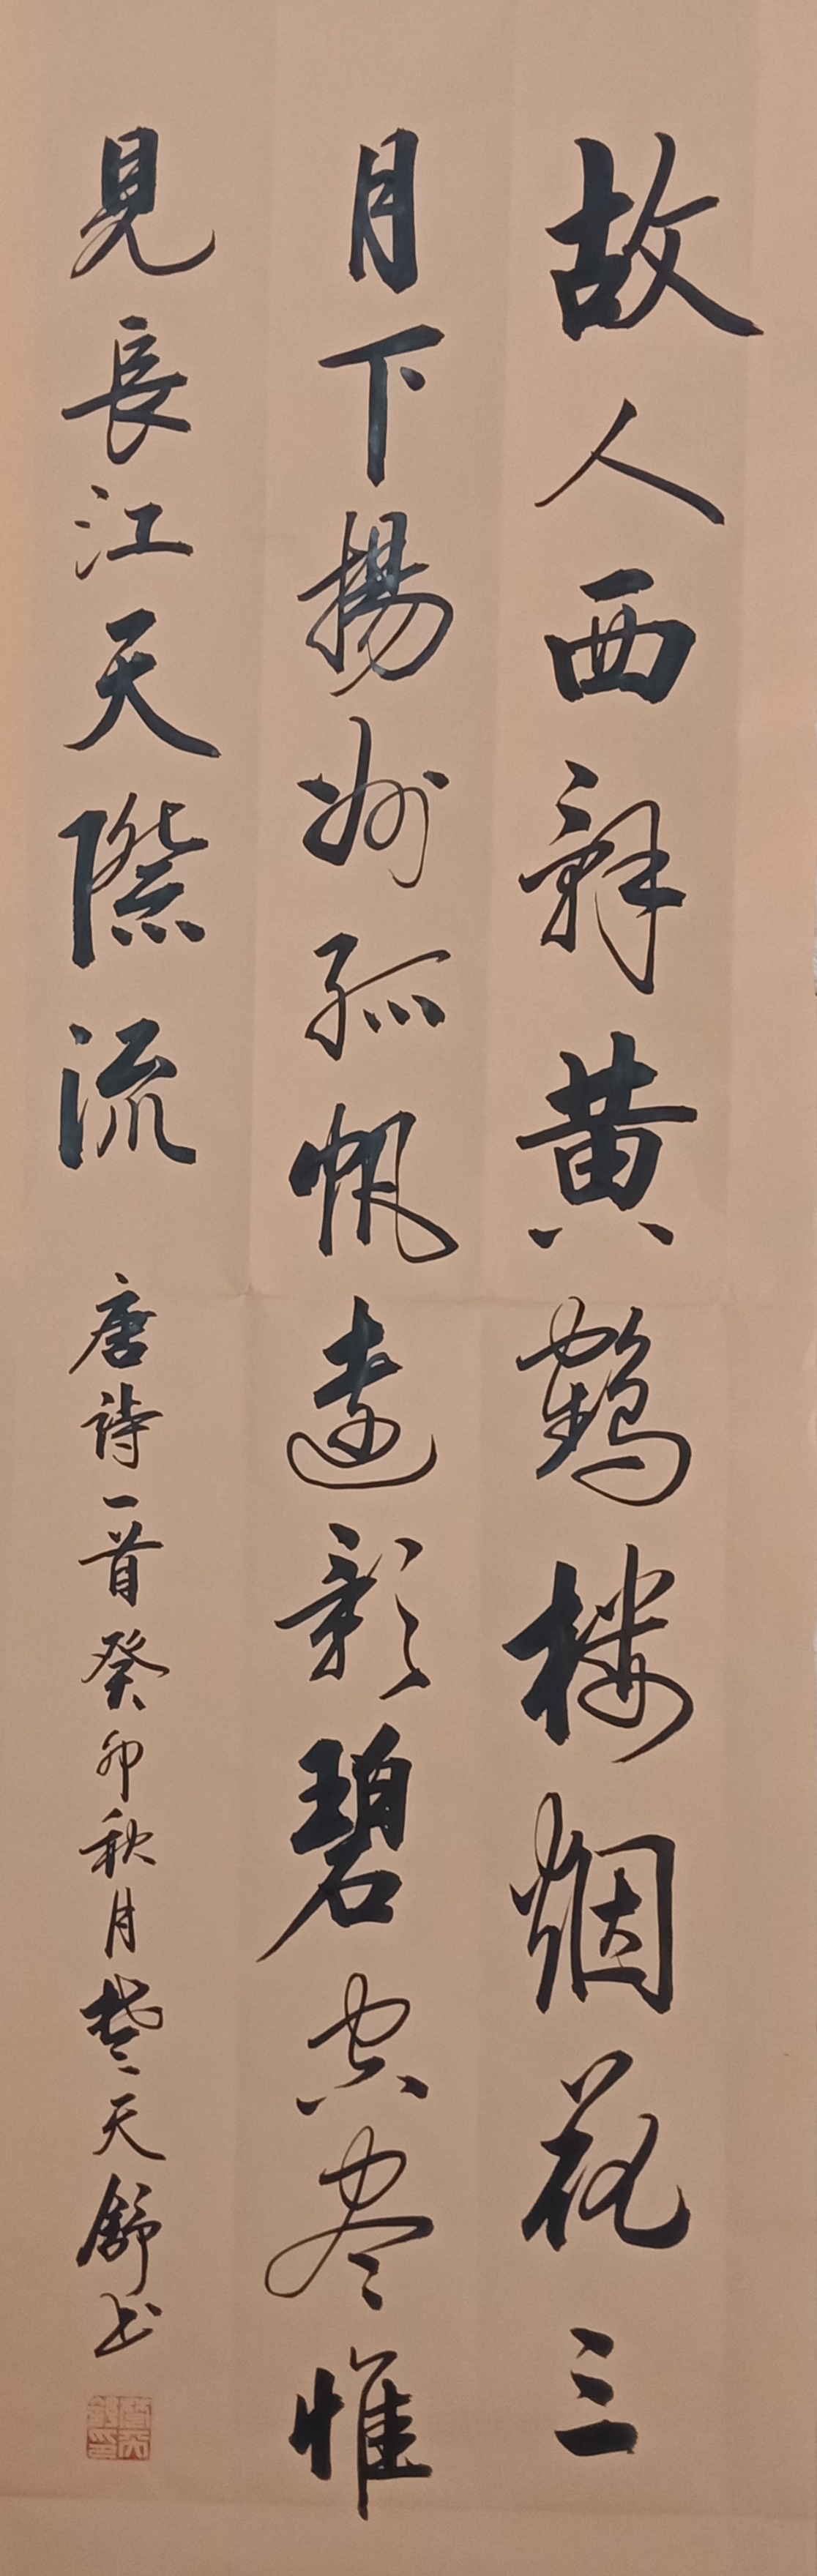 故人西辞黄鹤楼烟花三
月下揚州孤帆遠影碧空尽惟
見長江天際流
唐詩一首癸卯秋月楚天舒书